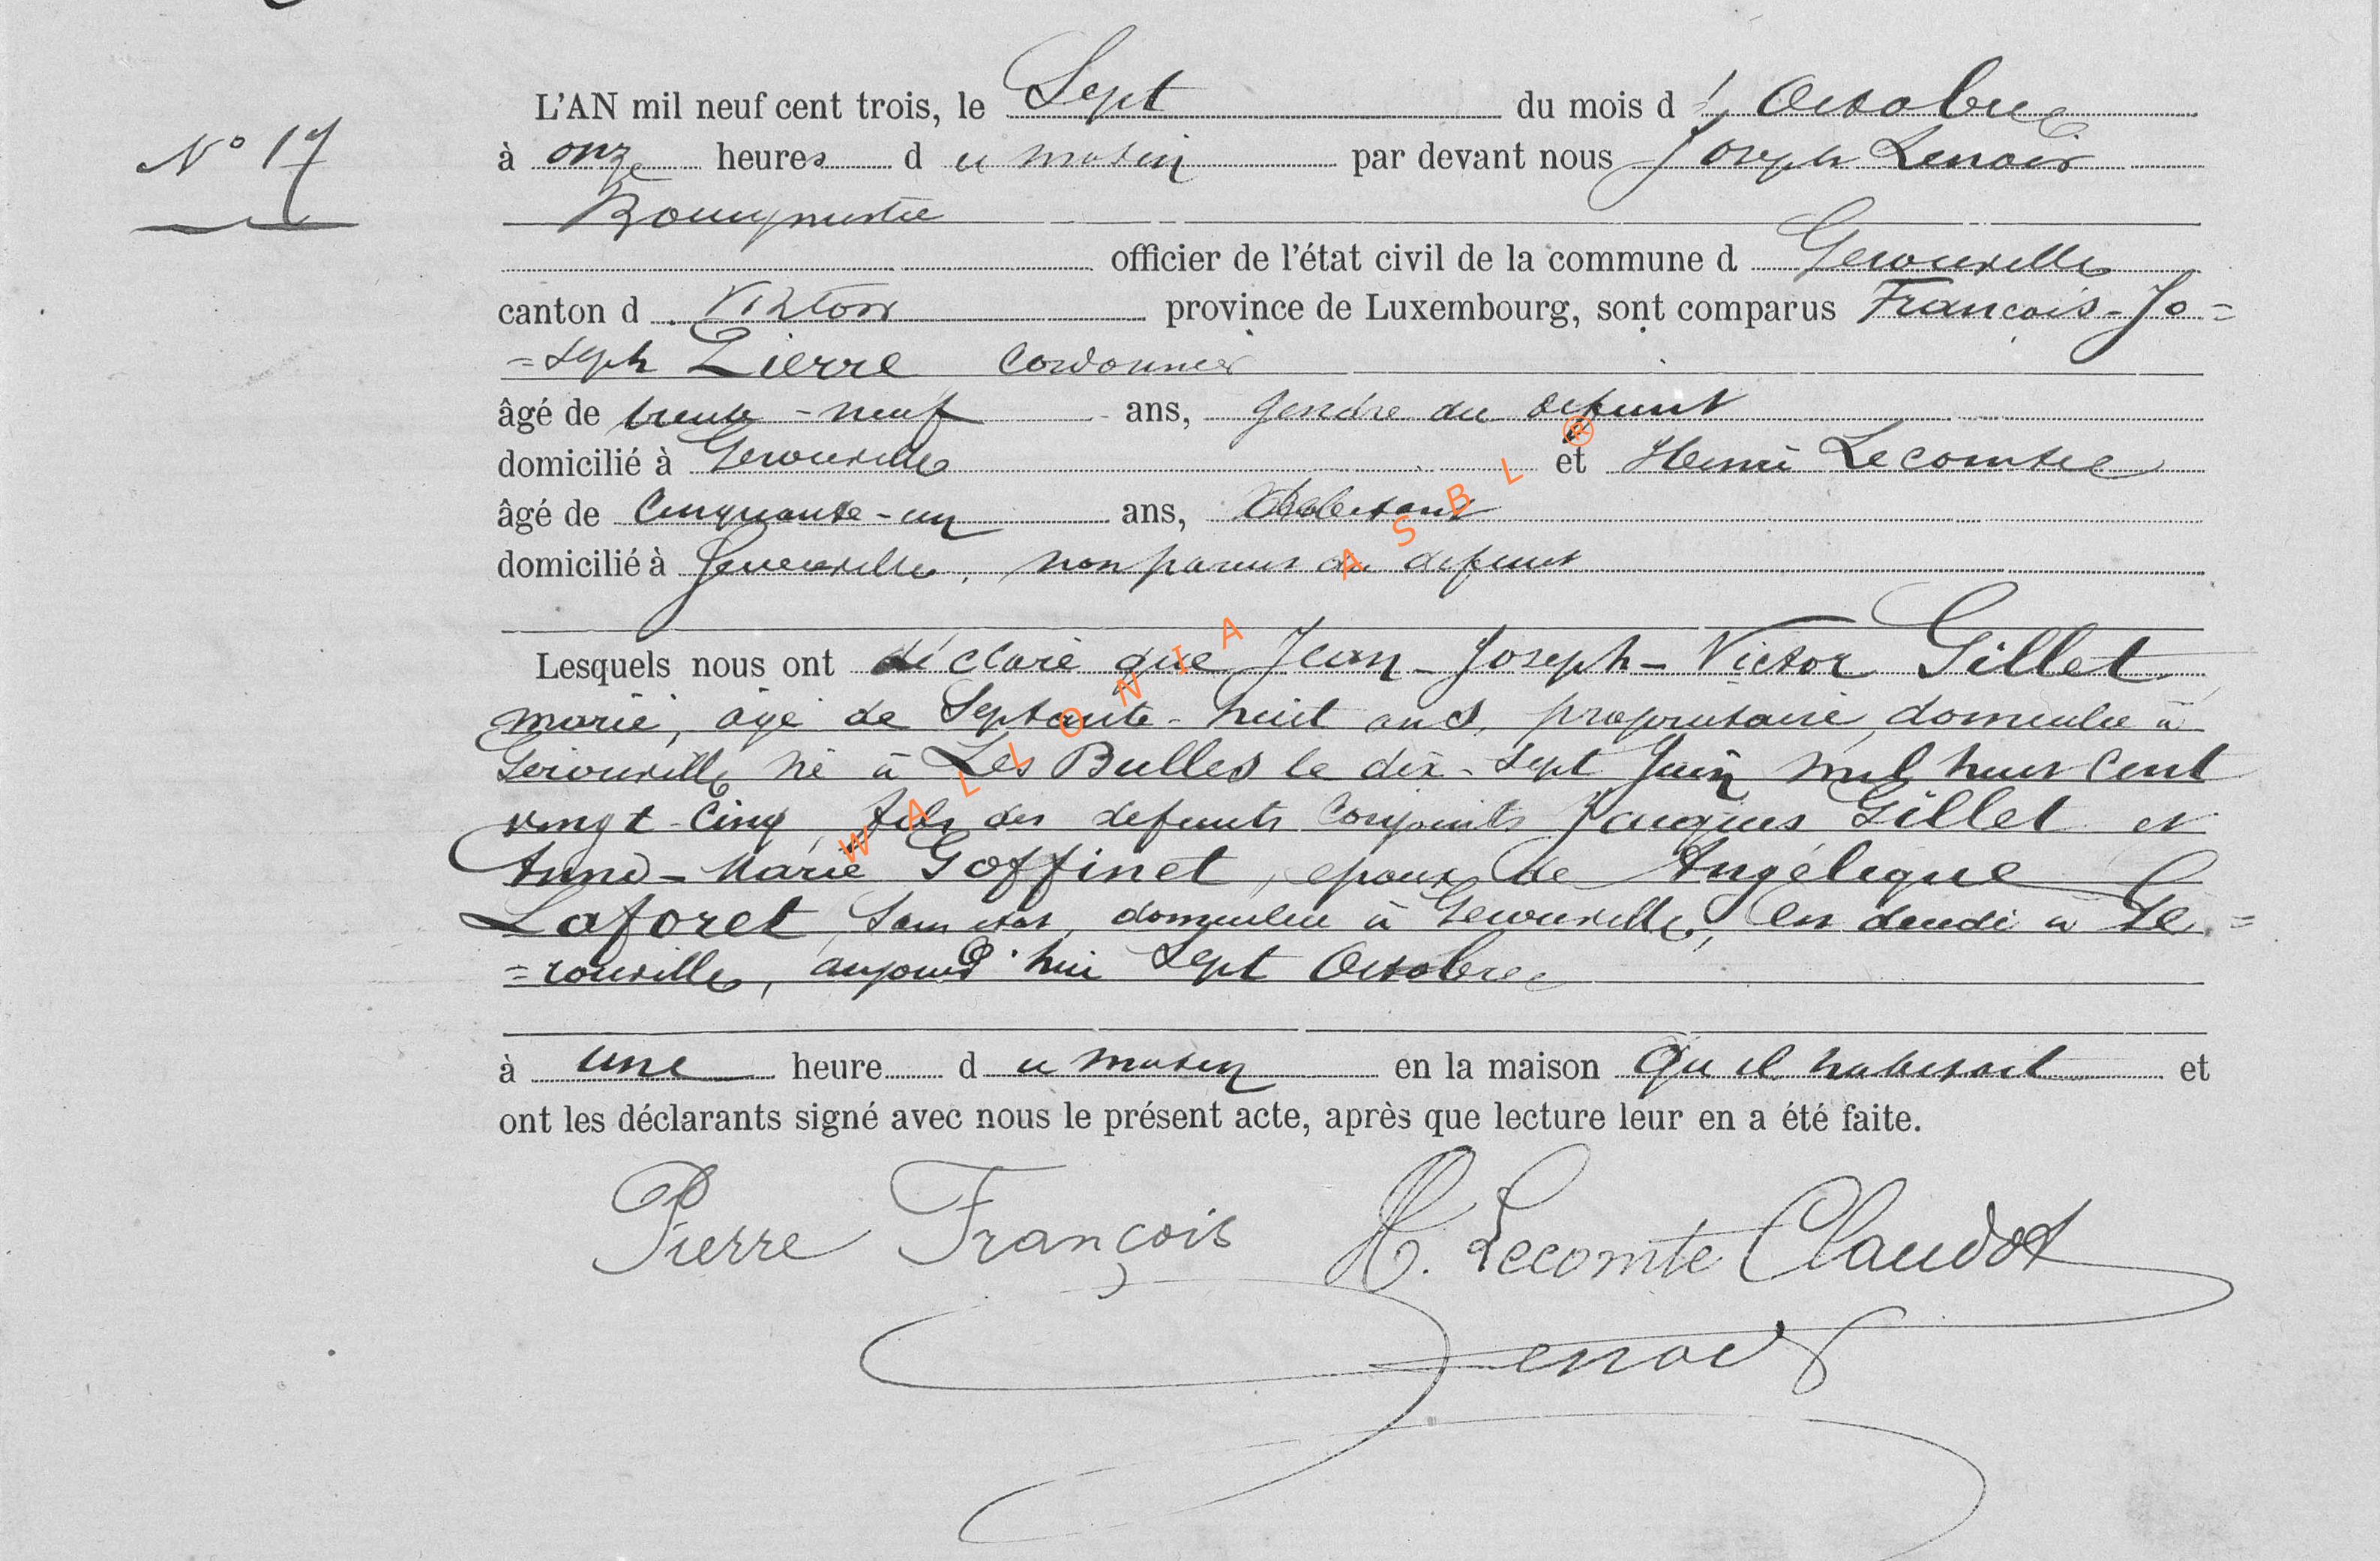 L'AN mil neuf cent trois, le Sept du mois d'Octobre
N° 17
à onze heures du matin par devant nous Joseph Lenoir
Bourgmestre
officier de l'état civil de la commune d Gerouville
canton d Virton province de Luxembourg, sont comparus François-Jo=
=seph Pierre cordonnier
âgé de trente-neuf ans, gendre du défunt
domicilié à Gerouville et Henri Lecomte
âgé de Cinquante-un ans,
domicilié à Gerouville, non parent du défunt
Lesquels nous ont déclaré que Jean-Joseph-Victor Gillet
marié, âgé de Septante-huit ans, propriétaire, domicilié à
Gerouville, né à Les Bulles le dix-sept Juin mil huit cent
vingt-cinq, fils des défunts conjoints Jacques Gillet et
Anne-Marie Goffinet, époux de Angélique
Laforet, sans état, domiciliée à Gerouville, est décédé à Ge=
=rouville, aujourd'hui Sept Octobre
à une heure du matin en la maison qu'il habitait et
ont les déclarants signé avec nous le présent acte, après que lecture leur en a été faite.
Pierre François H. Lecomte Claudot
Lenoir
WALLONIA ASBL ®